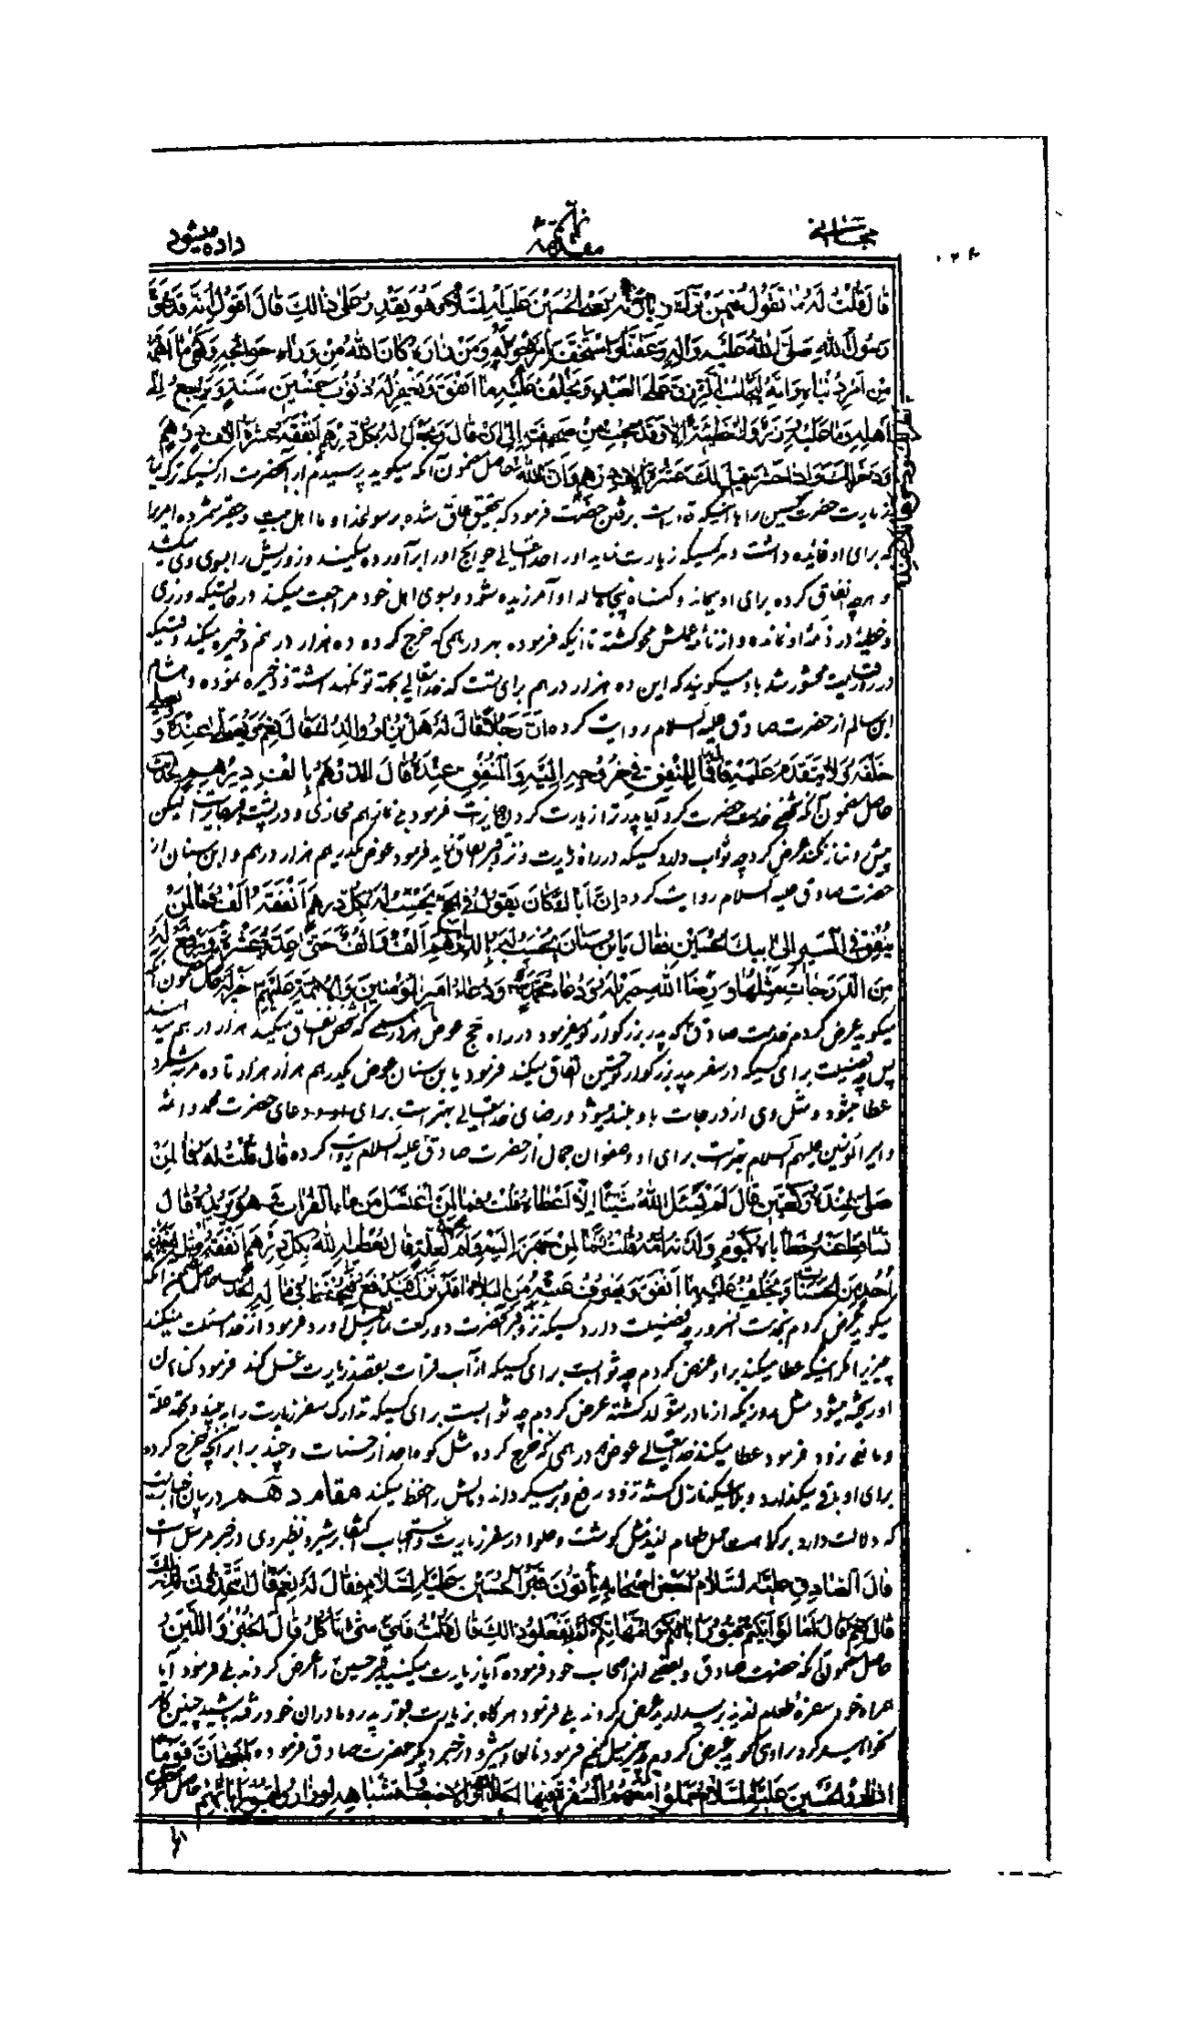 داده میشود
مقدمه
قال قلت له ما تقول فیمن ترک زیارته بعد الحسین علیه السلام و هو یقدر علی ذالک قال اقول انه قد عق
رسول الله صلی الله علیه و اله و عقنا و استخف بامر هو له و من زاره کان الله من وراء حوائجه و کفی ما اهمه
من امر دنیاه و انه لیجلب الرزق علی العبد و یخلف علیه ما انفق و یغفر له ذنوب خمسین سنة و یرجع الی
اهله و ما علیه وزر و لا خطیئة الا و قد محیت من صحیفته الی ان قال و یجعل له بکل درهم انفقه عشرة الاف درهم
و ذخر ذلک له فاذا حشر قیل لک عشرة الاف درهم و ان الله حاصل مضمون آنکه میگوید پرسیدم از آنحضرت از کسیکه ترک
زیارت حضرت حسین را با آنیکه قادر است برفتن حضرت فرمود که بتحقیق عاق شده برسولخدا و ما اهل بیت و حقیر شمرده امریرا
که برای او فائده داشت و هر کسیکه زیارت نماید او را خدایتعالی حوایج او را برآورده میکند و روزیش را بسوی وی میکشد
و هرچه انفاق کرده برای او بماند و گناه پنجاه ساله او آمرزیده شود و بسوی اهل خود مراجعت میکند در حالتیکه وزری
و خطیئه در ذمه او نمانده و از نامه عملش محو گشته تا آنیکه فرموده بهر درهمی که خرج کرده ده هزار درهم ذخیره میکنند وقتیکه
در روز قیامت محشور شد باو میگویند که این ده هزار درهم برای تست که خدایتعالی بجهة تو نگهداشته و ذخیره نموده و هشام
ابن سالم از حضرت صادق علیه السلام روایت کرده ان رجلا قال له هل یزار والدک فقال نعم و یصلی عنده و
خلفه و لا یتقدم علیه قال فما للمنفق فی خروجه الیه و المنفق عنده قال الدرهم بالف درهم
حاصل مضمون آنکه شخصی خدمت حضرت عرض کرد آیا پدر ترا زیارت کردن جایز است فرمود بلی نماز هم میگذاری و در پشت قبر جایز است لیکن
پیش او نماز نکند عرض کرد چه ثواب دارد کسیکه در راه زیارت و نزد قبر انفاق نماید فرمود عوض یکدرهم هزار درهم و ابن سنان از
حضرت صادق علیه السلام روایت کرده ان اباک کان یقول فی الحج یحسب له بکل درهم انفقه الف فما لمن
ینفق فی المسیر الی ابیک الحسین فقال یابن سنان یحسب له بالدرهم الف و الف حتی عد عشرة و یرفع له
من الدرجات مثلها و رضا الله خیر له و دعاء محمد و دعاء امیر المؤمنین و الائمة علیهم خیر له حاصل مضمون آنکه
میگوید عرض کردم خدمت صادق که پدر بزرگوار تو میفرمود در راه حج عوض هر درهمی که شخص انفاق میکند هزار درهم میدهند
پس چه فضیلت برای کسیکه در سفر پدر بزرگوار تو حسین انفاق میکند فرمود یابن سنان عوض یکدرهم هزار هزار تا ده مرتبه شمرد
عطا میشود و مثل وی از درجات باو بلند میشود و رضای خدایتعالی بهتر است برای او و دعای حضرت محمد و ائمه
و امیر المؤمنین علیهم السلام بهتر است برای او و صفوان جمال از حضرت صادق علیه السلام روایت کرده قال قلت له فما لمن
صلی عنده رکعتین قال لم یسئل الله شیئا الا اعطاه قلت فما لمن اغتسل من ماء الفرات ثم هو یریده قال
تساقط عنه خطایاه کیوم ولدته امه قلت فما لمن جهز الیه و لم یخرج لعلة قال یعطیه الله بکل درهم انفقه مثل
احد من الحسنات و یخلف علیه ما انفق و یصرف عنه من البلاء ما قد نزل فیدفع و یحفظ فی ماله حاصل مضمون آنکه
میگوید عرض کردم بخدمت آنسرور چه فضیلت دارد کسیکه نزد قبر آنحضرت دو رکعت نماز بعمل آورد فرمود از خدا مسئلت نمیکند
چیزیرا مگر اینکه عطا میکند باو عرض کردم چه ثوابست برای کسیکه از آب فرات بقصد زیارت غسل کند فرمود گناهان
او ریخته میشود مثل روزیکه از مادر متولد گشته عرض کردم چه ثوابست برای کسیکه تدارک سفر زیارت را ببیند و بجهة علة
و مانعی نرود فرمود عطا میکند خدایتعالی عوض هر درهمی که خرج کرده مثل کوه احد از حسنات و چند برابر آنچه خرج کرده
برای او باقی میگذارد و بلائیکه نازل گشته از او رفع و بر میگرداند و مالش را حفظ میکند مقام دهم در بیان
که دلالت دارد بر کراهت حمل طعام لذیذ مثل گوشت و حلوا در سفر زیارت و استحباب اکتفا بر شیر و نظیر وی در خبر مرسل است
قال الصادق علیه السلام لبعض اصحابه یأتون قبر الحسین علیه السلام فقال له نعم قال تتخذون لذلک سفرة
قال نعم قال اما لو اتیتم قبور ابائکم و امهاتکم لم تفعلوا ذالک قال قلت فای شئ ناکل قال الخبز و اللبن
حاصل مضمون آنکه حضرت صادق ببعضی از اصحاب خود فرموده آیا زیارت میکنید قبر حسین را عرض کردند بلی فرمود آیا
همراه خود سفره طعام لذیذ بر میدارید عرض کردند بلی فرمود هر گاه بزیارت قبور پدر و مادران خود رفته باشید چنین کار
نخواهید کرد راوی گوید عرض کردم چه چیز میل کنیم فرمود نان و شیر و در خبر دیگر حضرت صادق فرموده بلغنی ان قوما
اذا زاروا الحسین علیه السلام حملوا معهم السفرة فیها الحلاوة و الاخبصة و اشباهه لو زاروا قبور ابائهم